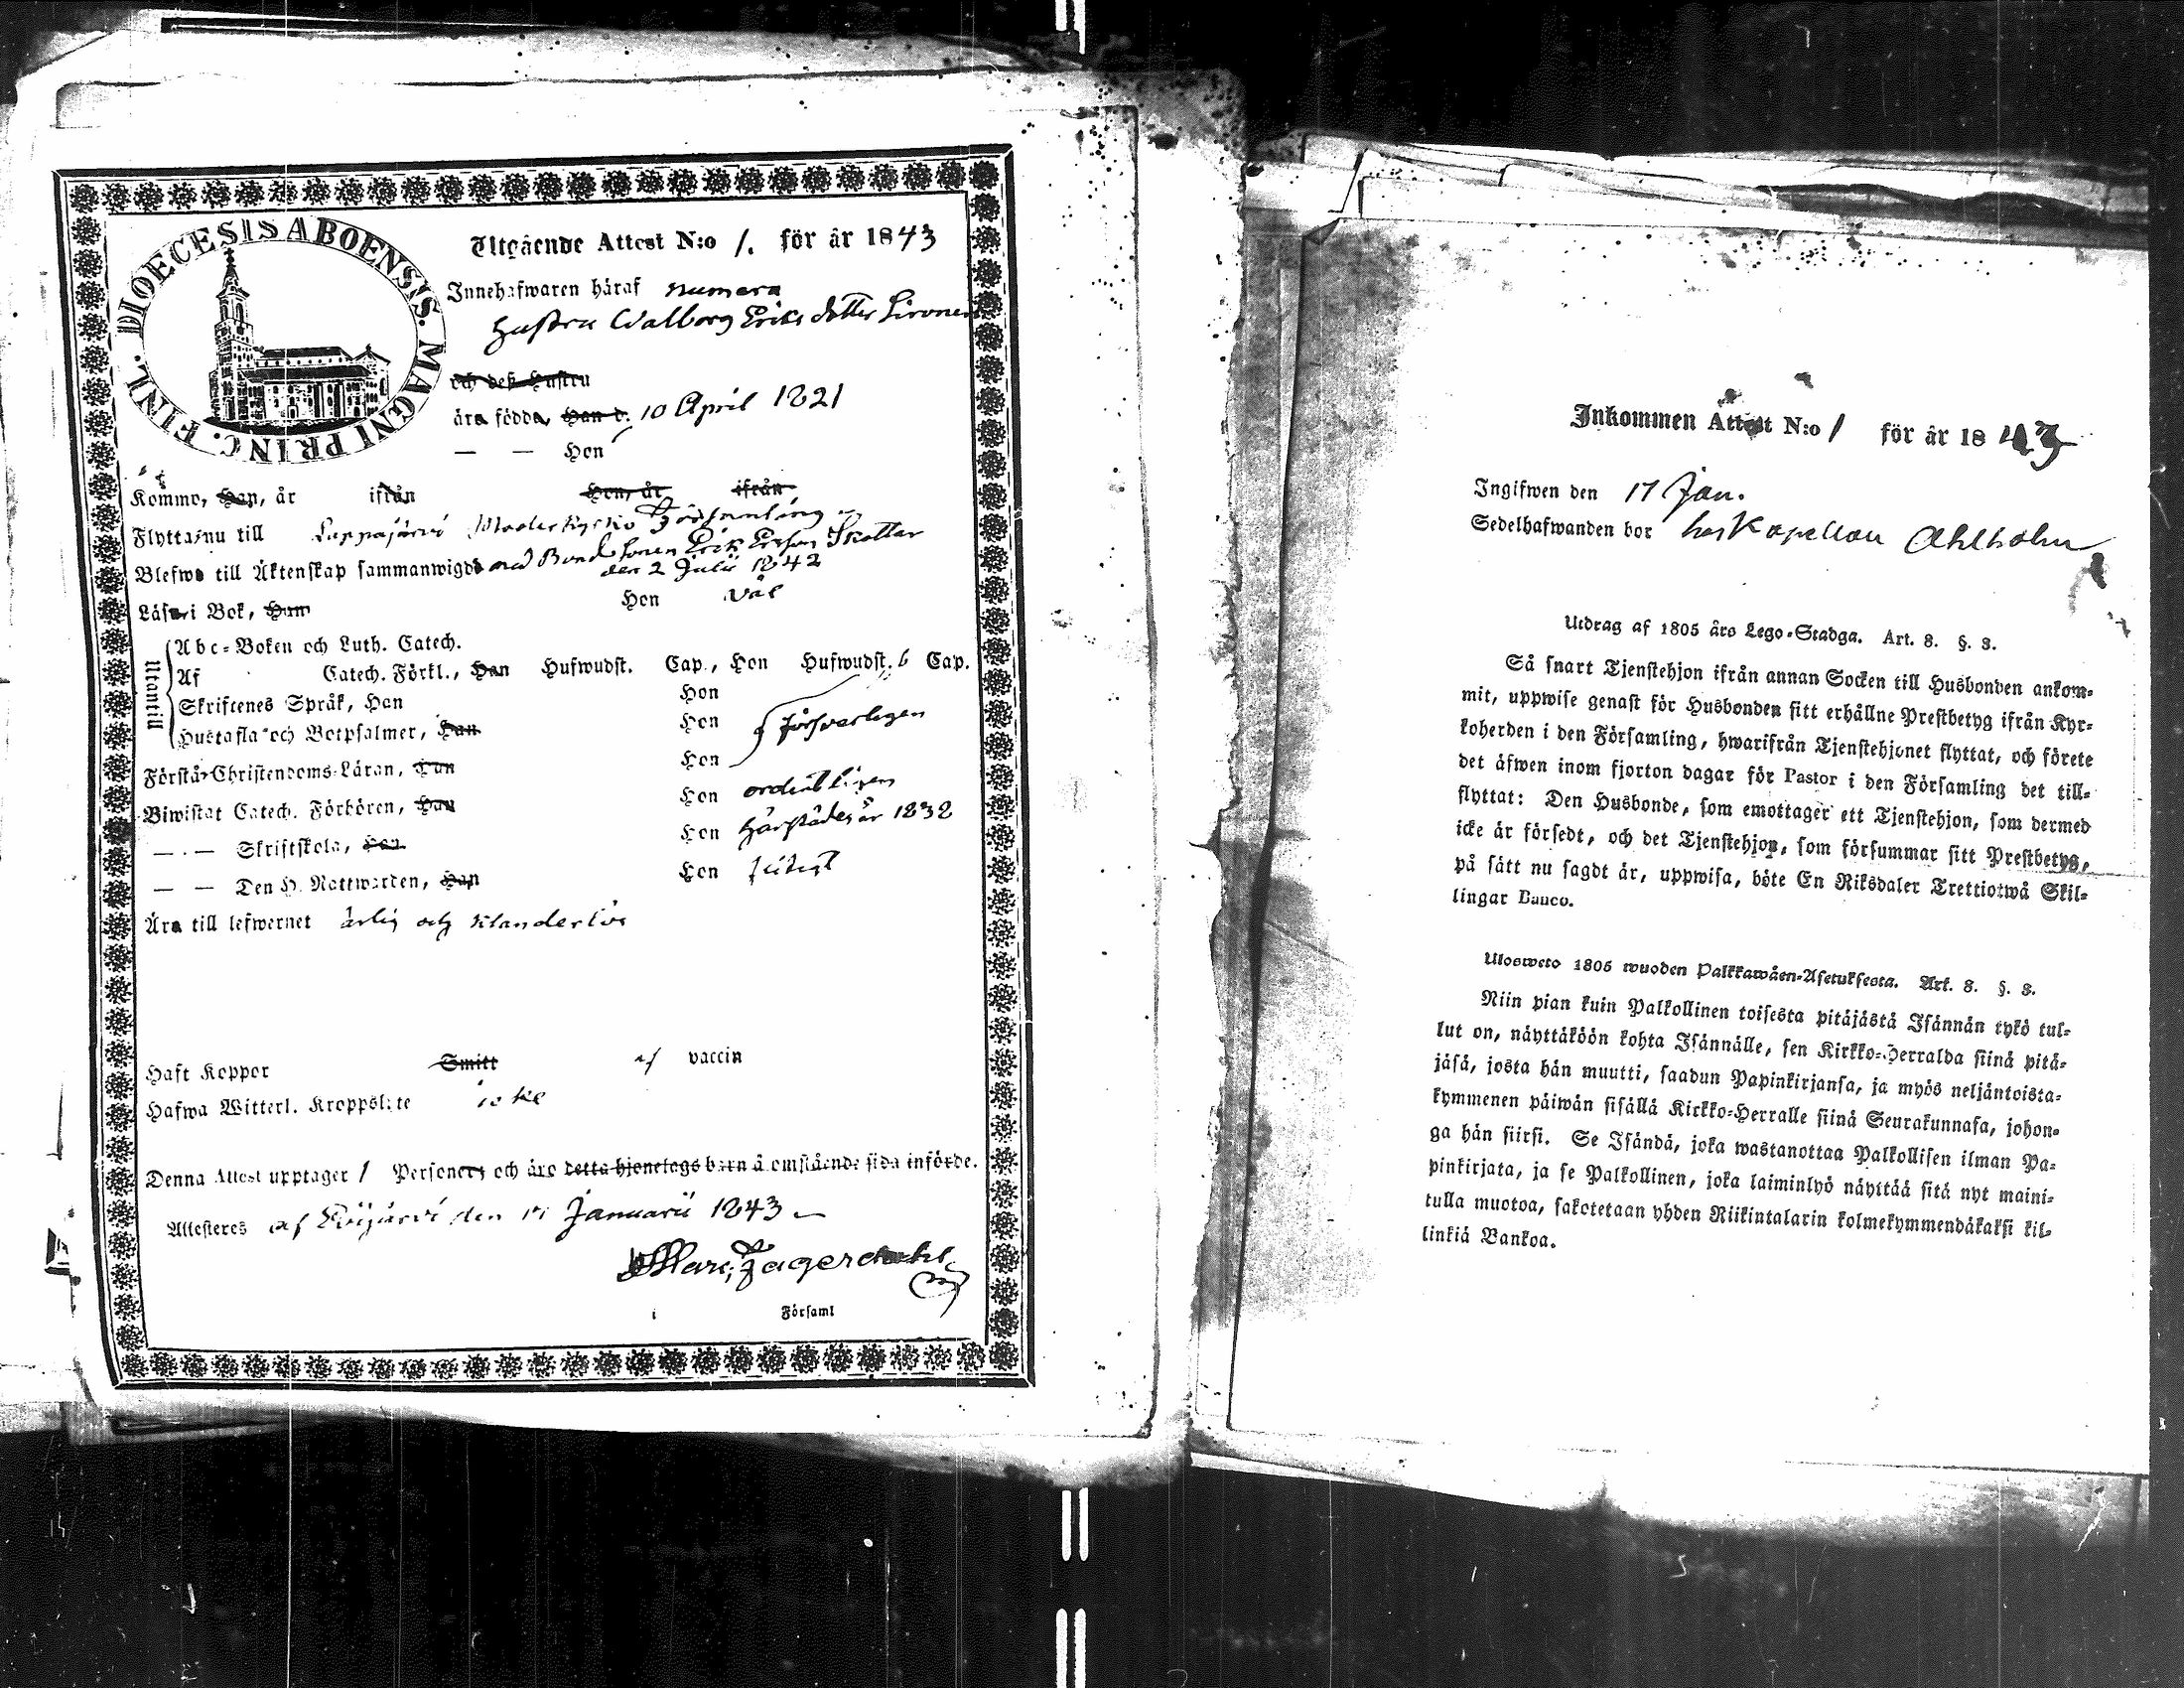 DIOECESIS ABOENSIS. MAGNI PRINC. FINL.
Utgående Attest N:o 1. för år 1843
Innehafwaren häraf numera
Hustru Walborg Eriks dotter
och dess Hustru
ära födda, Han d. 10 April 1821
— — Hon
Komme, Han, år ifrån Hon, år ifrån
Flytta nu till Lappajärvi Moderkyrko Församling
Blefwo till Äktenskap sammanwigde med Bondesonen Erik Ersson
den 2 Julii 1842
Läsa i Bok, Han Hon väl
Utantill
Abc-Boken och Luth. Catech.
Af Catech. Förkl., Han Hufwudst. Cap., Hon Hufwudst. 6 Cap.
Skriftenes Språk, Han Hon
Hustafla och Botpsalmer, Han Hon försvarligen
Förstå Christendoms-Läran, Han Hon
Biwistat Catech. Förhören, Han Hon ordentligen
— — Skriftskola, Han Hon härstädes år 1838
— — Den H. Nattwarden, Han Hon
Ära till lefwernet ärlig och klanderlös
Haft Koppor Smitt af vaccin
Hafwa Witterl. Kroppslyte icke
Denna Attest upptager 1 Personer, och äro detta hjonelags barn å omstående sida införde.
Attesteras af den Januarii 1843
i Församl
Inkommen Attest N:o 1 för år 1843
Ingifwen den 17 Jan.
Sedelhafwanden bor hos Kapellan Ahlholm
Utdrag af 1805 års Lego-Stadga. Art. 8. §. 3.
Så snart Tjenstehjon ifrån annan Socken till Husbonden ankom-
mit, uppwise genast för Husbonden sitt erhållne Prestbetyg ifrån Kyr-
koherden i den Församling, hwarifrån Tjenstehjonet flyttat, och förete
det äfwen inom fjorton dagar för Pastor i den Församling det till-
flyttat: Den Husbonde, som emottager ett Tjenstehjon, som dermed
icke är försedt, och det Tjenstehjon, som försummar sitt Prestbetyg,
på sätt nu sagdt är, uppwisa, böte En Riksdaler Trettiotwå Skil-
lingar Banco.
Ulosweto 1805 wuoden Palkkawäen-Asetuksesta. Art. 8. §. 3.
Niin pian kuin Palkollinen toisesta pitäjästä Isännän tykö tul-
lut on, näyttäköön kohta Isännälle, sen Kirkko-Herralda siinä pitä-
jäsä, josta hän muutti, saadun Papinkirjansa, ja myös neljäntoista-
kymmenen päiwän sisällä Kirkko-Herralle siinä Seurakunnasa, johon-
ga hän siirsi. Se Isändä, joka wastanottaa Palkollisen ilman Pa-
pinkirjata, ja se Palkollinen, joka laiminlyö näyttää sitä nyt maini-
tulla muotoa, sakotetaan yhden Riikintalarin kolmekymmendäkaksi kil-
linkiä Bankoa.